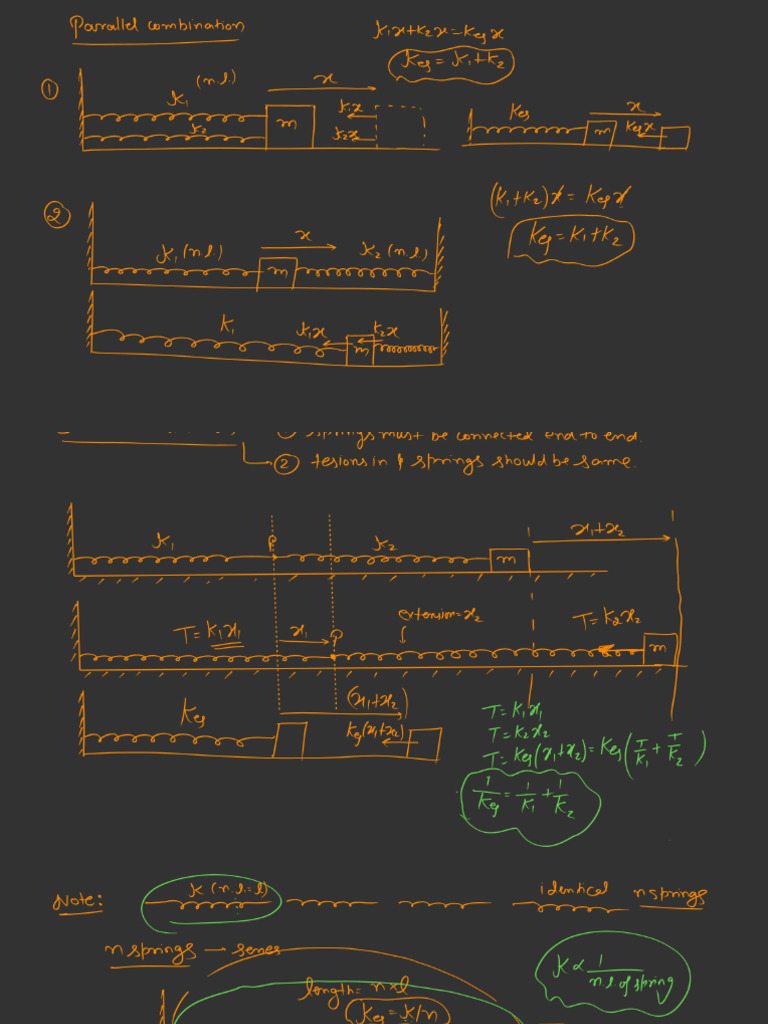 Parrallel combination
K₁x+K₂x=Keqx
Keq = K₁+K₂
①
(n.l.)
K₁
x
K₂
m
K₁x
K₂x
Keq
x
m
Keqx
②
(K₁+K₂)x = Keqx
Keq = K₁+K₂
K₁(n.l.)
x
K₂(n.l.)
m
K₁
K₁x
K₂x
m
① springs must be connected end to end.
② tesions in springs should be same.
K₁
P
K₂
m
x₁+x₂
T=K₁x₁
x₁
P
extension=x₂
T=K₂x₂
m
Keq
(x₁+x₂)
Keq(x₁+x₂)
T=K₁x₁
T=K₂x₂
T=Keq(x₁+x₂)=Keq(T/K₁+T/K₂)
1/Keq=1/K₁+1/K₂
Note:
K (n.l.=l)
identical n springs
n springs → series
K∝1/n.l of spring
length= n×l
Keq=K/n